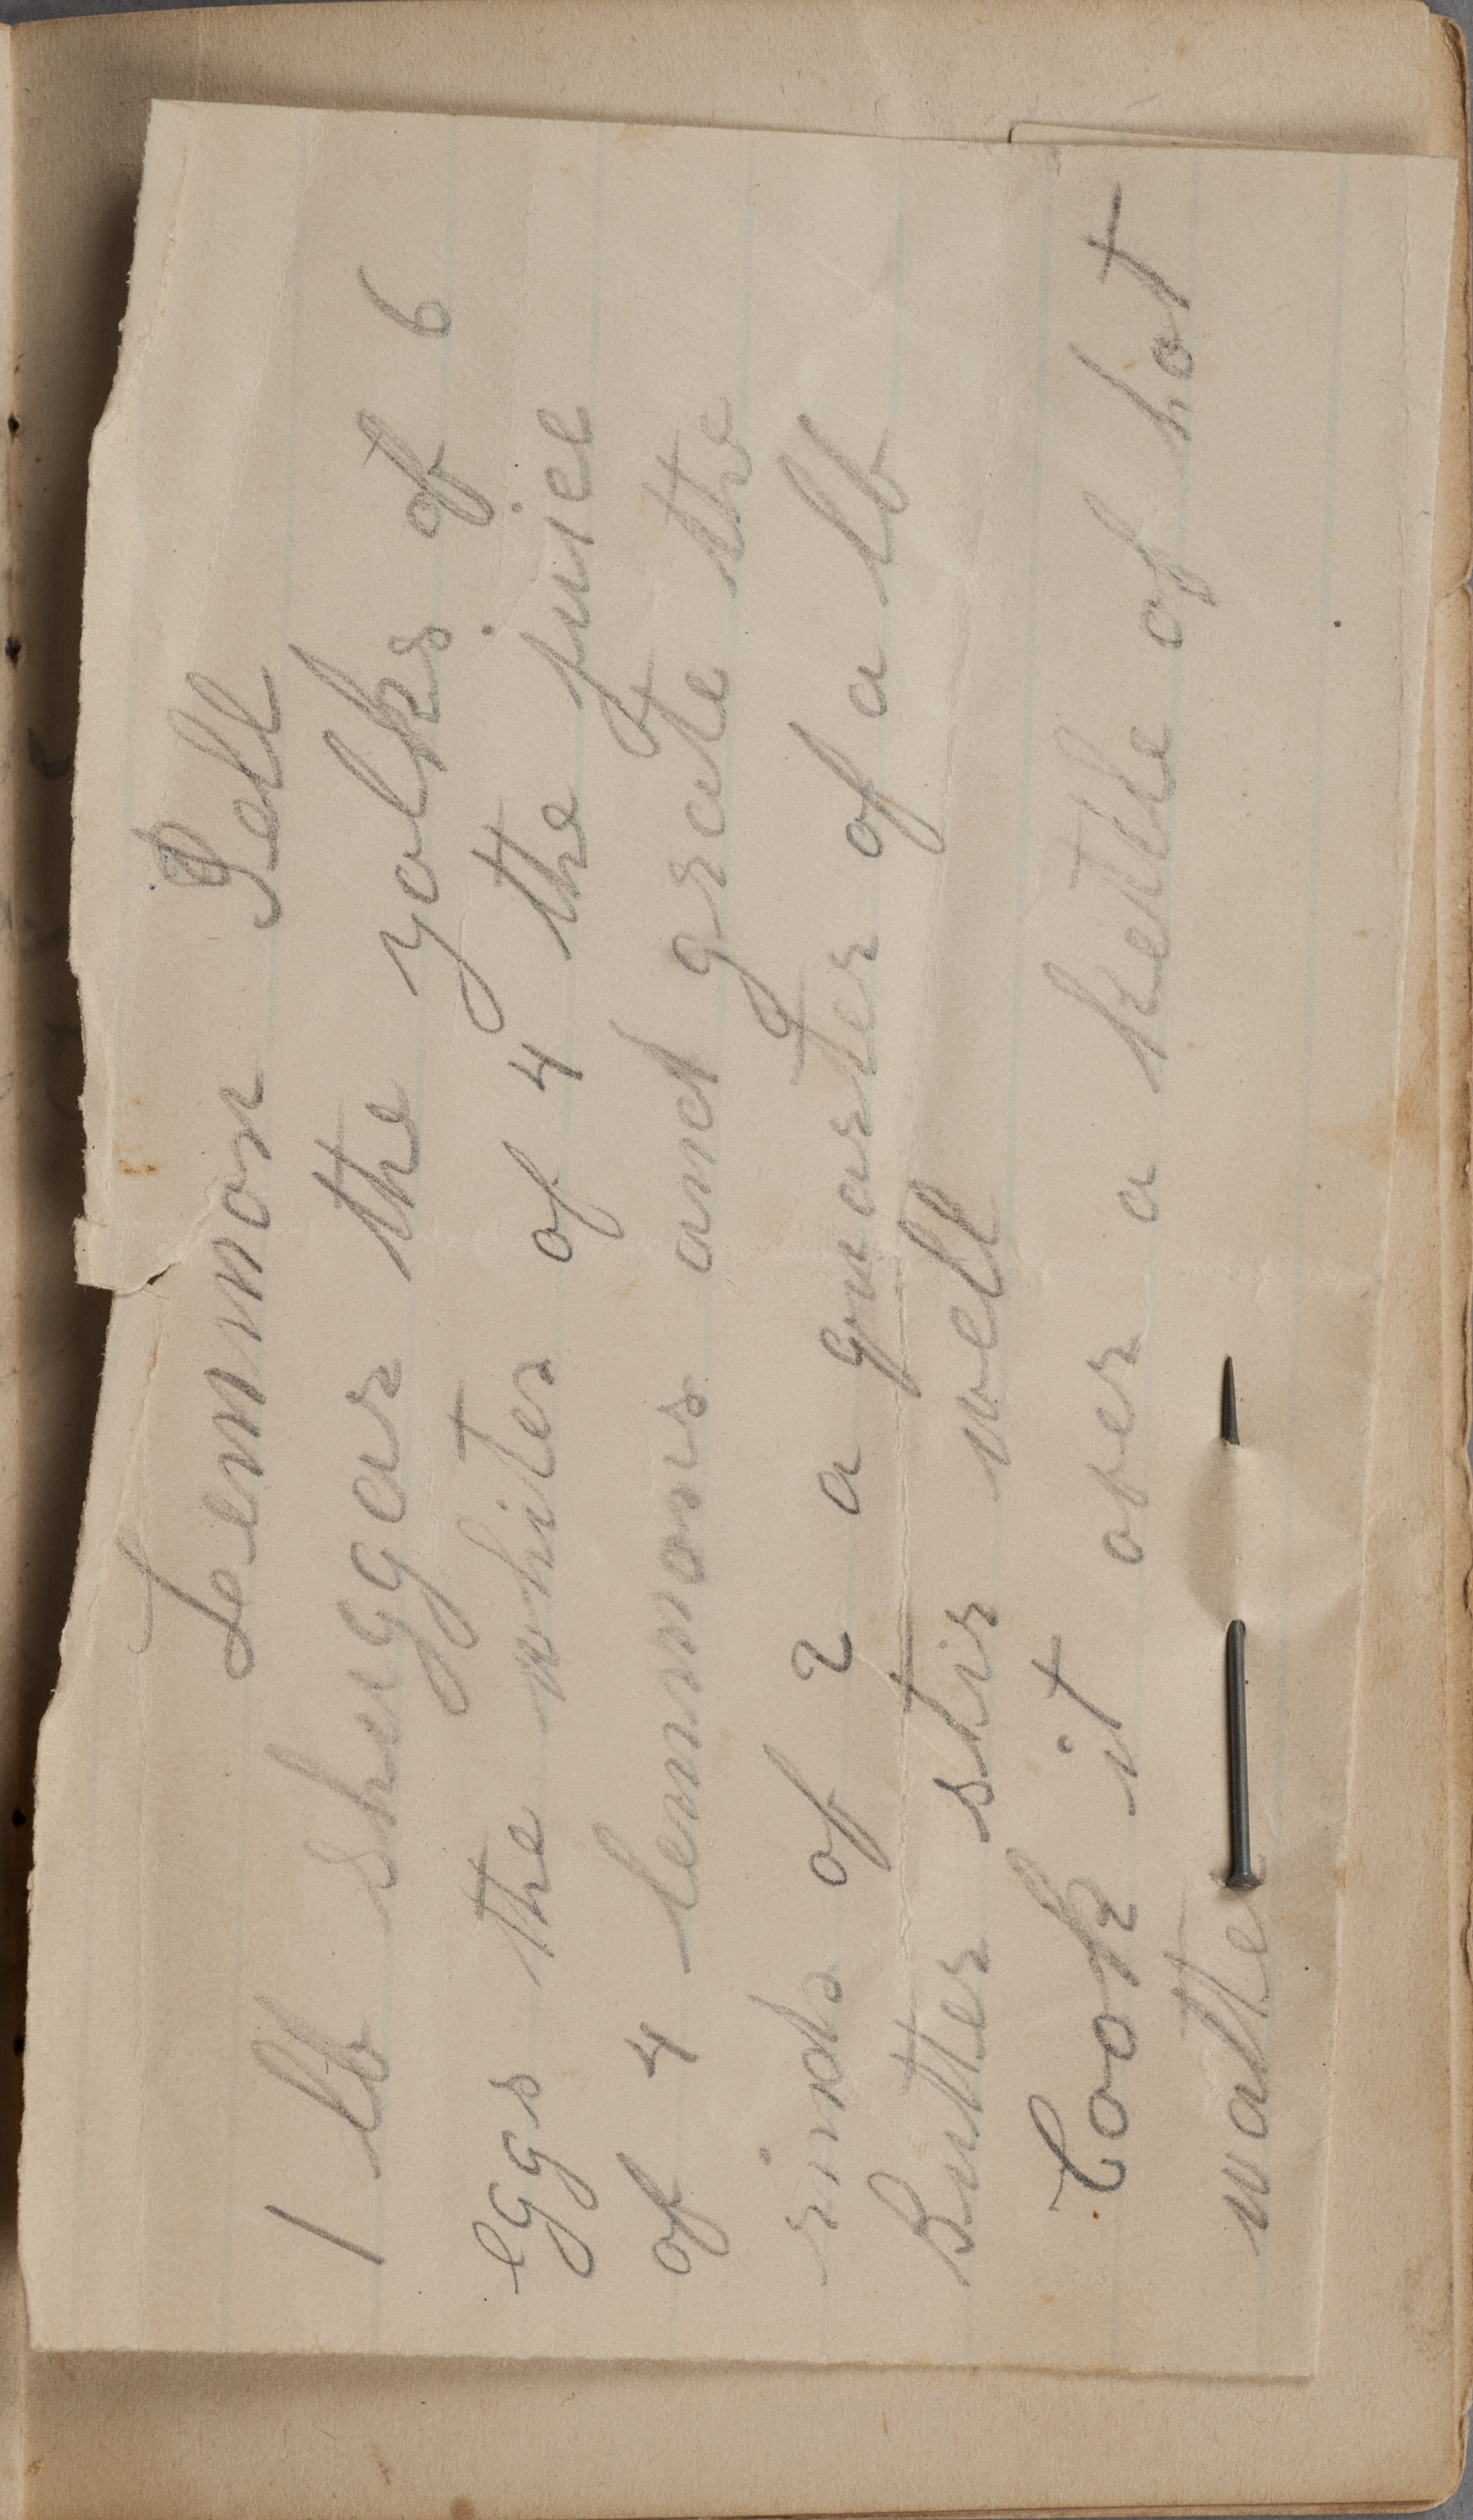 Lemmon Jell
1 lb shuggar the yolks of 6
eggs the whites of 4 the juice
of 4 lemmons and grate the
rinds of 2 a quarter of a lb
Butter stir well
Cook it over a kettle of hot
watter